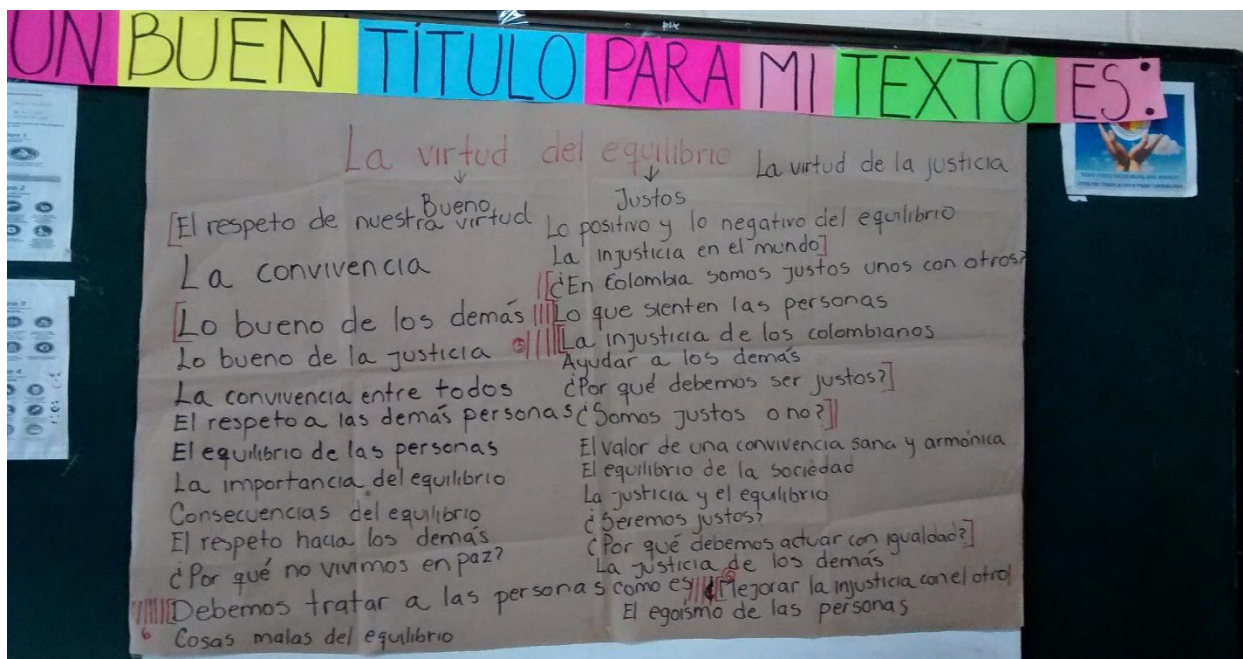 UN BUEN TÍTULO PARA MI TEXTO ES:
La virtud del equilibrio
La virtud de la justicia
Bueno
Justos
[El respeto de nuestra virtud
La convivencia
[Lo bueno de los demás
Lo bueno de la justicia
La convivencia entre todos
El respeto a las demás personas
El equilibrio de las personas
La importancia del equilibrio
Consecuencias del equilibrio
El respeto hacia los demás
¿Por qué no vivimos en paz?
[Debemos tratar a las personas como es
6
Cosas malas del equilibrio
Lo positivo y lo negativo del equilibrio
La injusticia en el mundo]
[¿En Colombia somos justos unos con otros?
Lo que sienten las personas
[La injusticia de los colombianos
Ayudar a los demás
¿Por qué debemos ser justos?]
¿Somos justos o no?]
El valor de una convivencia sana y armónica
El equilibrio de la sociedad
La justicia y el equilibrio
¿Seremos justos?
¿Por qué debemos actuar con igualdad?]
La justicia de los demás
[Mejorar la injusticia con el otro]
El egoísmo de las personas